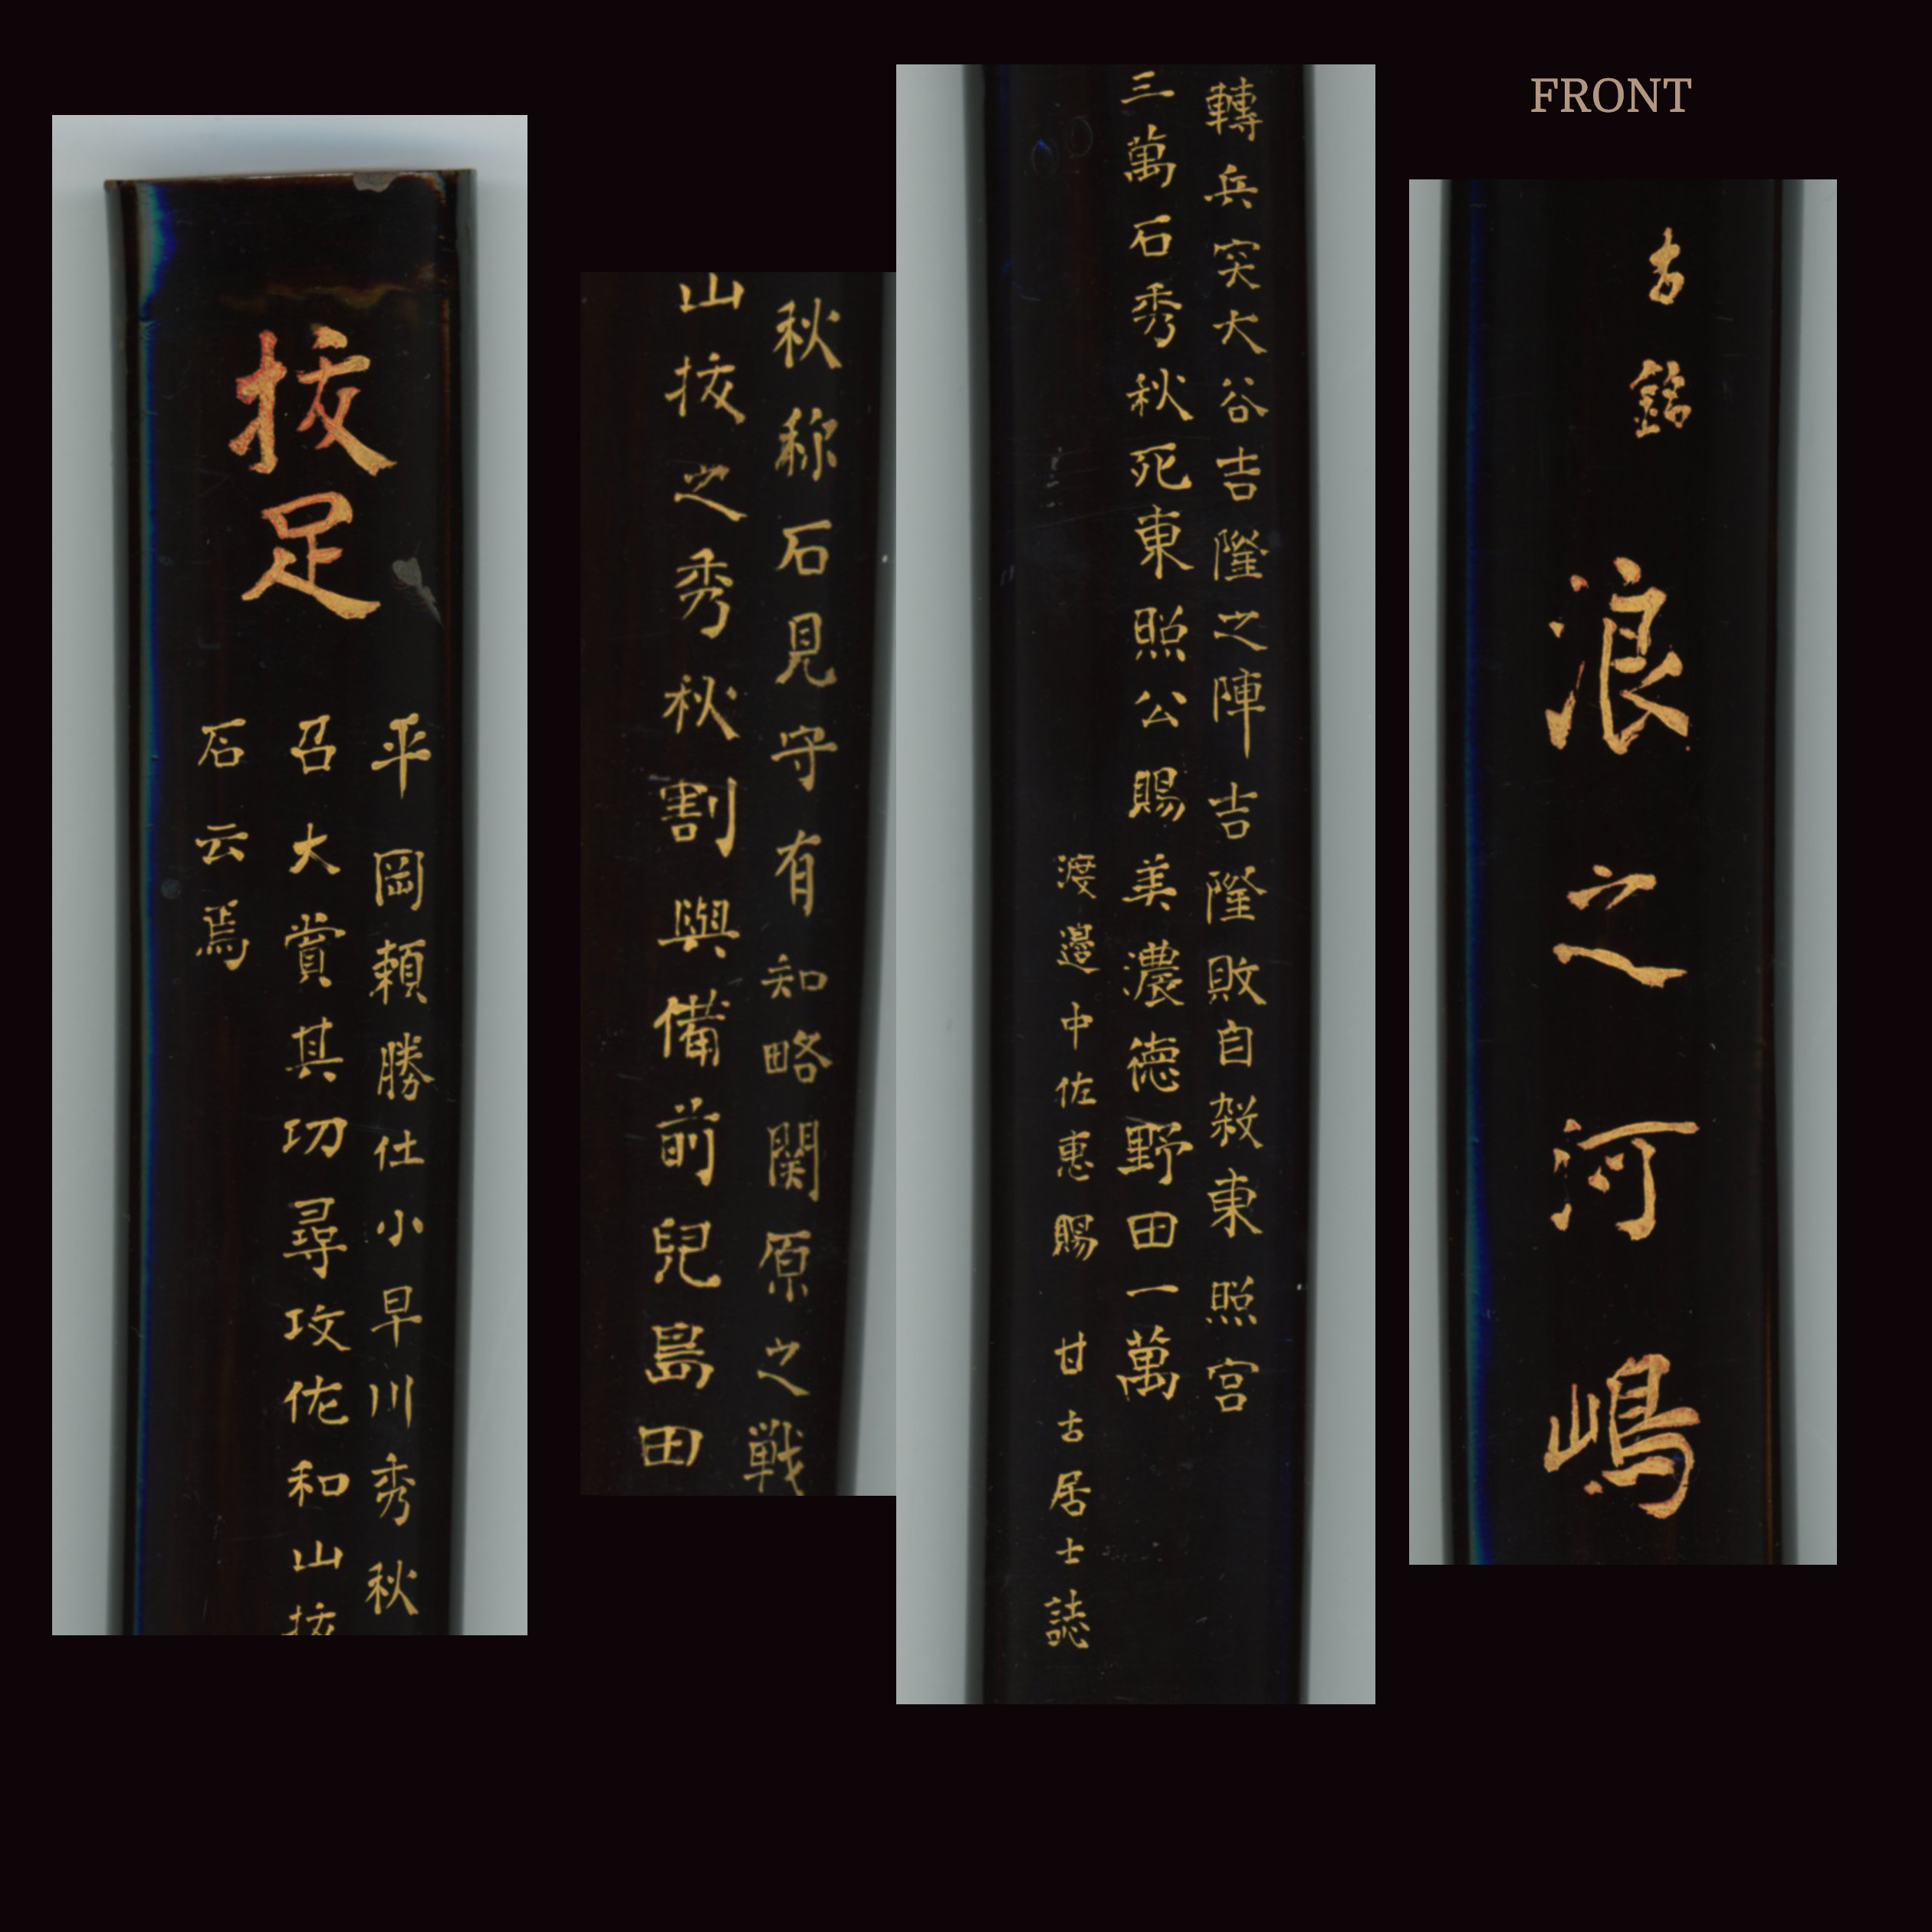 抜足
平岡頼勝仕小早川秀秋
召大賞其功尋攻佐和山抜
石云焉
秋称石見守有知略関原之戦
山抜之秀秋割與備前兒島田
轉兵突大谷吉隆之陣吉隆敗自殺東照宮
三萬石秀秋死東照公賜美濃徳野田一萬
渡邊中佐惠賜 甘古居士誌
FRONT
古銘
浪之河嶋